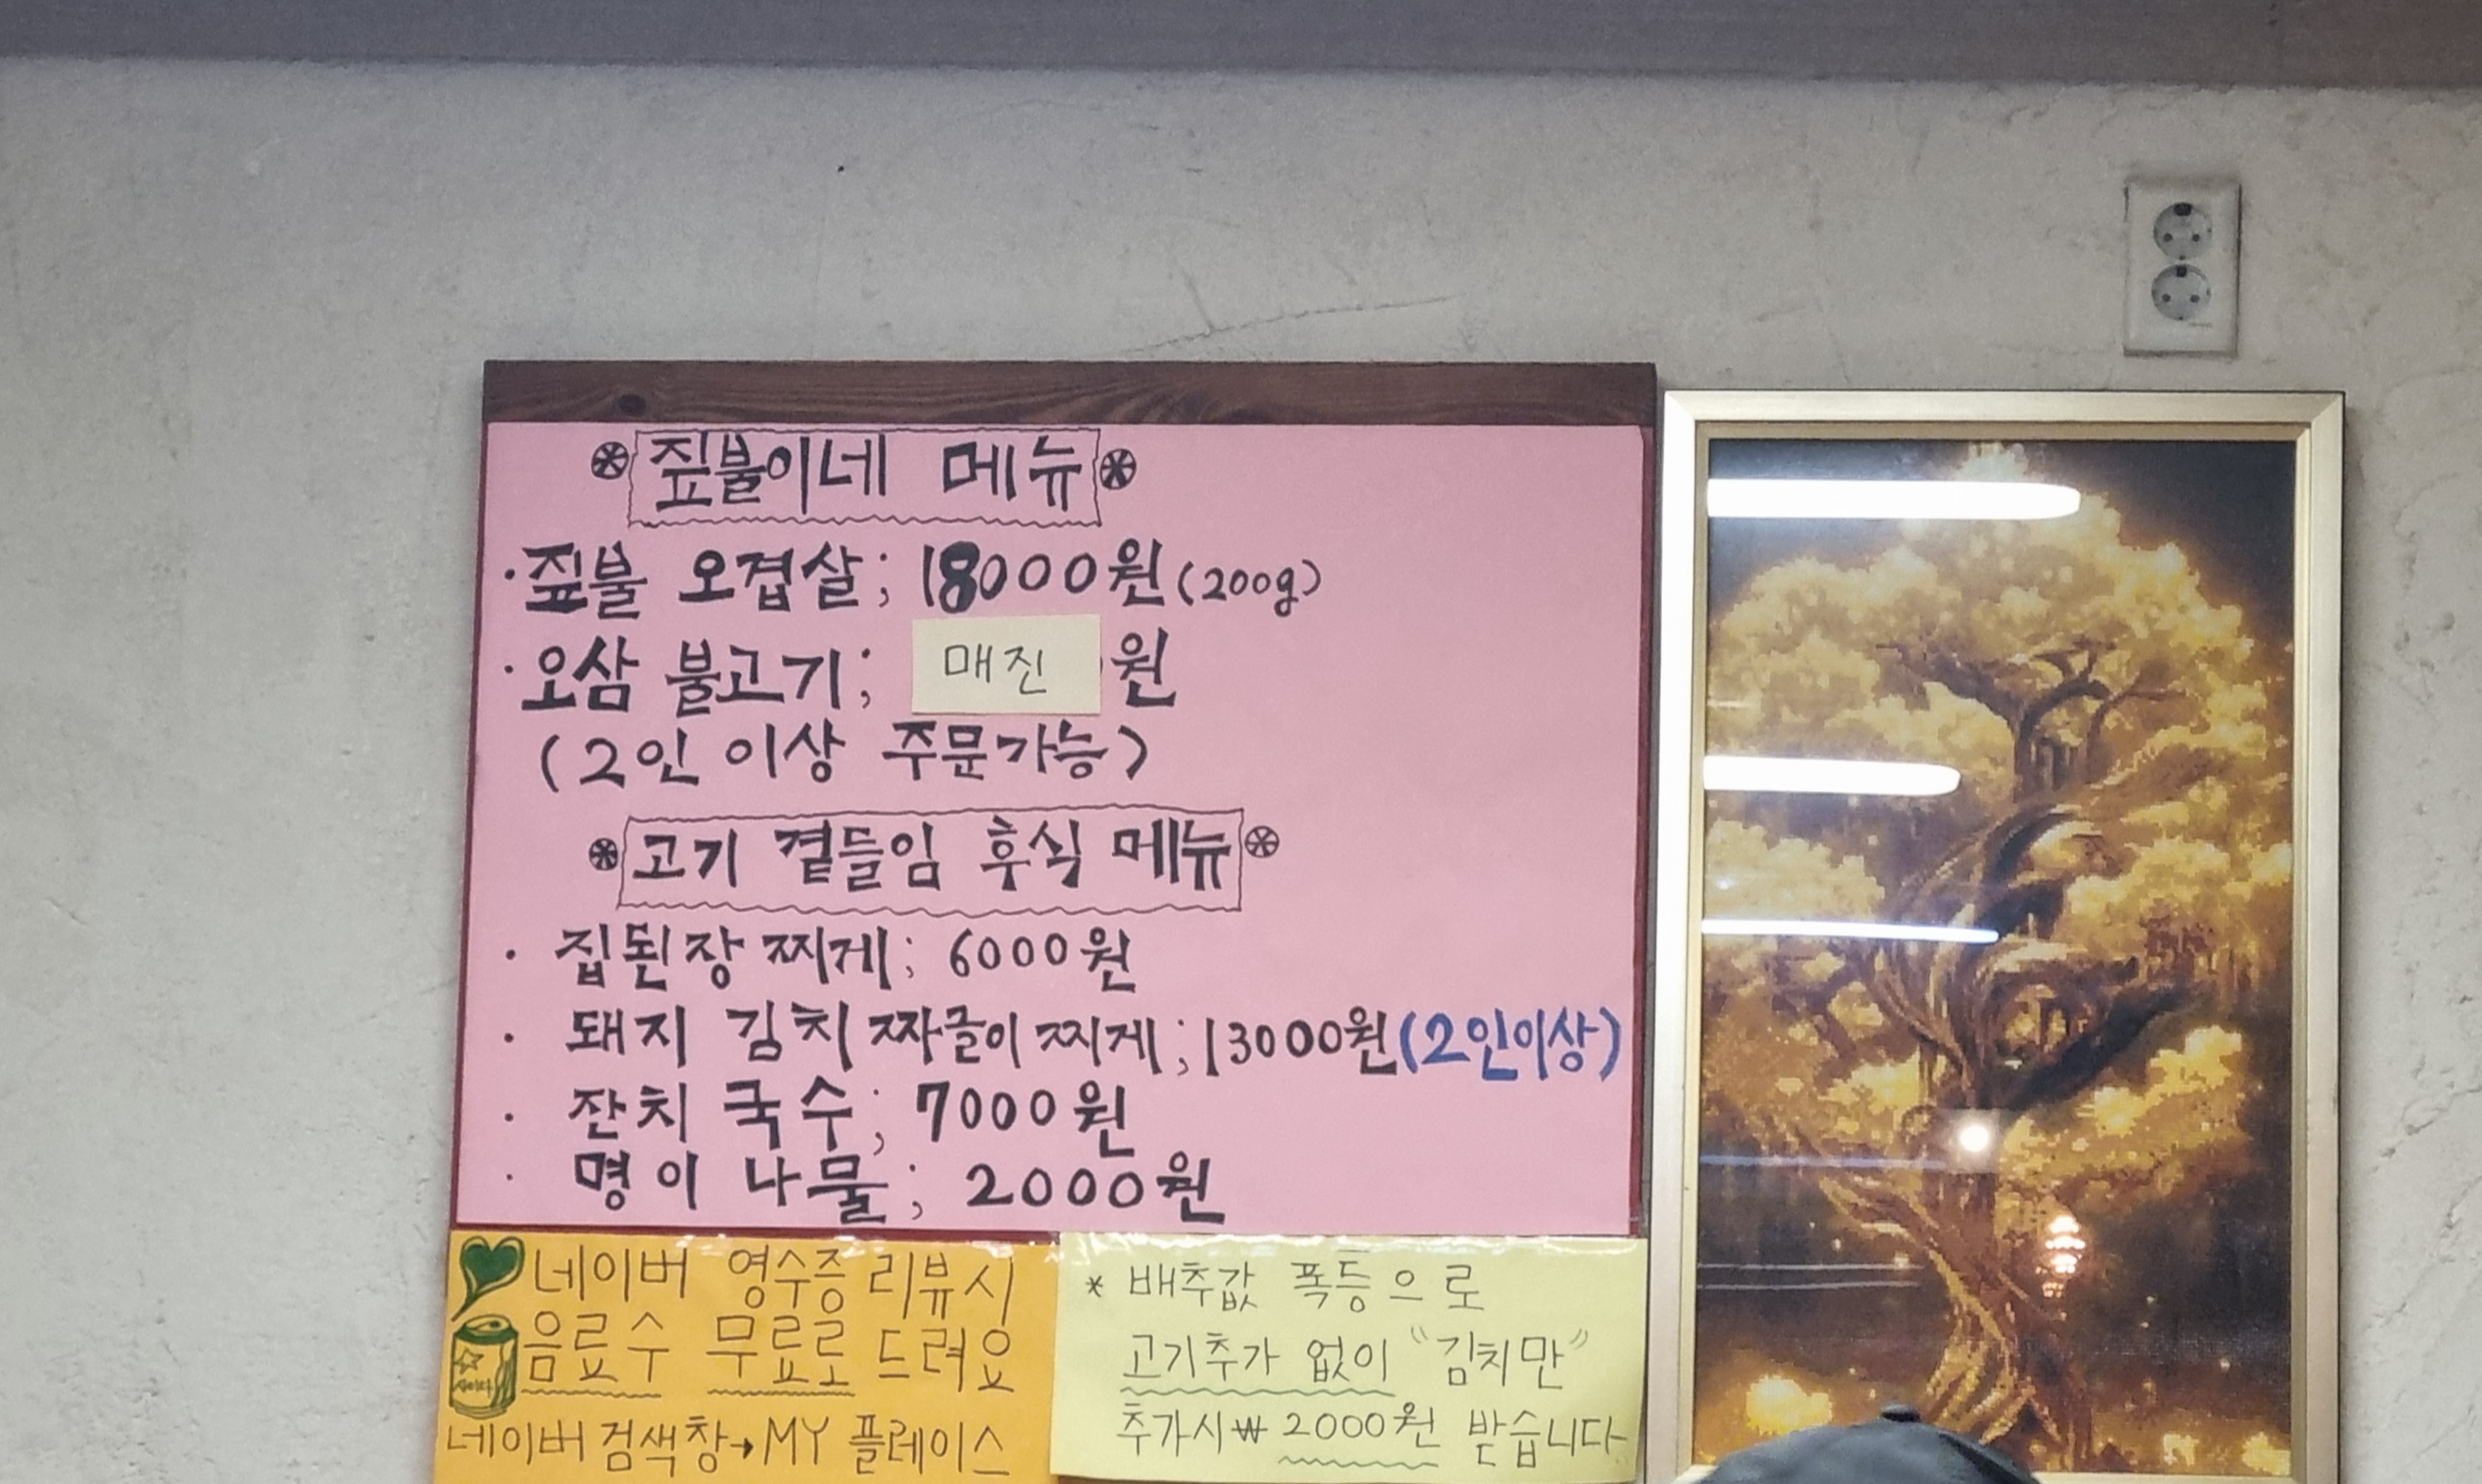 짚불이네 메뉴
·짚불 오겹살; 18000원(200g)
·오삼 불고기; 매진 원
(2인 이상 주문가능)
고기 곁들임 후식 메뉴
· 집된장 찌게; 6000원
· 돼지 김치 짜글이 찌게; 13000원(2인이상)
· 잔치 국수; 7000원
· 명이 나물; 2000원
네이버 영수증 리뷰시
음료수 무료로 드려요
사이다
네이버 검색창→MY 플레이스
* 배추값 폭등으로
고기추가 없이 "김치만"
추가시 ₩ 2000원 받습니다